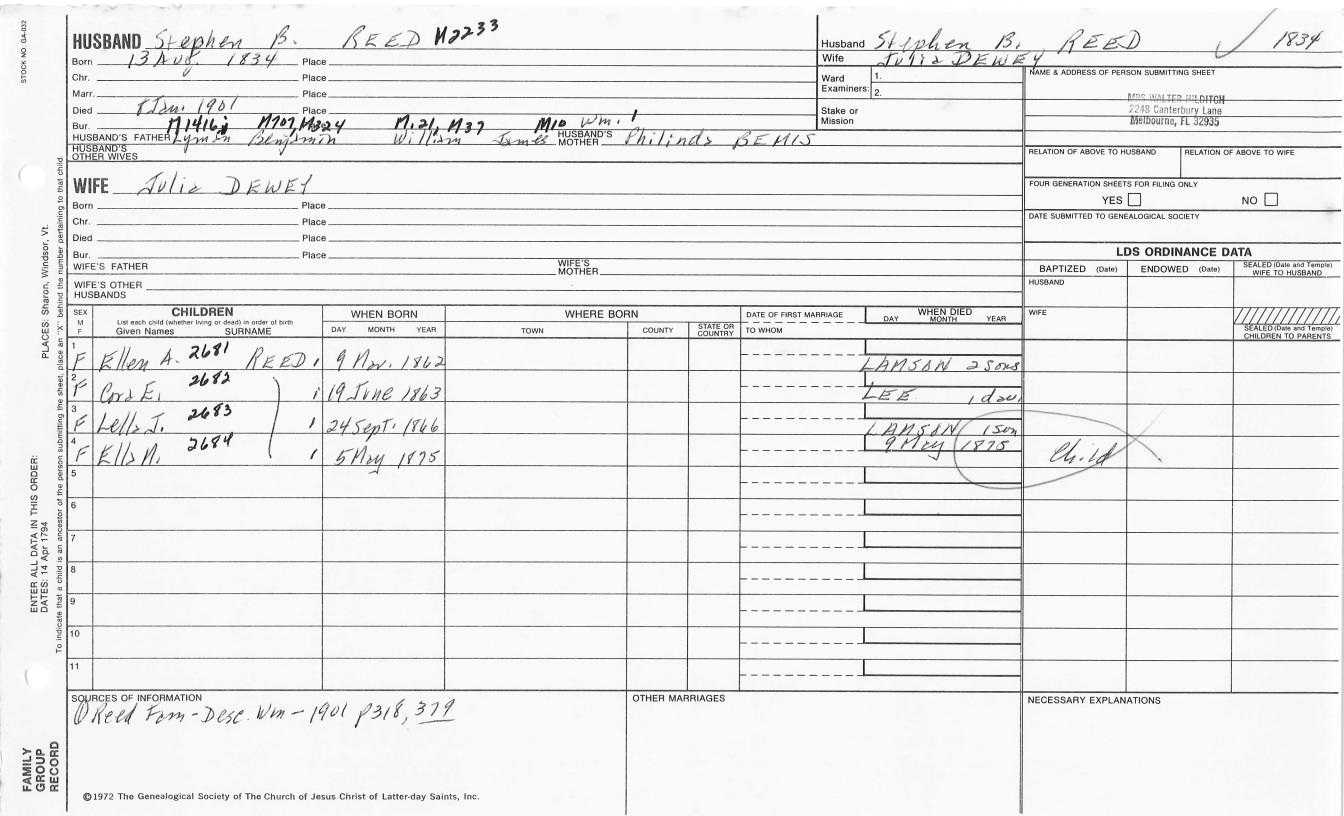 STOCK NO. GA-032
HUSBAND Stephen B. REED M2233
Born 13 Aug. 1834 Place
Chr. Place
Marr. Place
Died 8 Jan. 1901 Place
Bur. Place
M1416; M707, M324 M.21, M37 M10 Wm. 1
HUSBAND'S FATHER Lyman Benjamin William James HUSBAND'S MOTHER Philinda BEMIS
HUSBAND'S OTHER WIVES
Husband Stephen B. REED ✓ 1834
Wife Julia DEWEY
Ward 1.
Examiners: 2.
Stake or Mission
NAME & ADDRESS OF PERSON SUBMITTING SHEET
MRS WALTER HILDITCH
2248 Canterbury Lane
Melbourne, FL 32935
RELATION OF ABOVE TO HUSBAND RELATION OF ABOVE TO WIFE
FOUR GENERATION SHEETS FOR FILING ONLY
YES NO
DATE SUBMITTED TO GENEALOGICAL SOCIETY
WIFE Julia DEWEY
Born Place
Chr. Place
Died Place
Bur. Place
WIFE'S FATHER WIFE'S MOTHER
WIFE'S OTHER HUSBANDS
LDS ORDINANCE DATA
BAPTIZED (Date) ENDOWED (Date) SEALED (Date and Temple) WIFE TO HUSBAND
HUSBAND
WIFE
SEALED (Date and Temple) CHILDREN TO PARENTS
SEX M F CHILDREN WHEN BORN WHERE BORN DATE OF FIRST MARRIAGE WHEN DIED
List each child (whether living or dead) in order of birth
Given Names SURNAME DAY MONTH YEAR TOWN COUNTY STATE OR COUNTRY TO WHOM DAY MONTH YEAR
1 F Ellen A. 2681 REED 9 Nov. 1862 LAMSON 2 sons
2 F Cora E. 2682 19 June 1863 LEE 1 dau.
3 F Lella J. 2683 24 Sept. 1866 LAMSON 1 son
4 F Ella M. 2684 5 May 1875 9 May 1875 Child
5
6
7
8
9
10
11
SOURCES OF INFORMATION OTHER MARRIAGES NECESSARY EXPLANATIONS
① Reed Fam - Desc. Wm - 1901 p318, 379
©1972 The Genealogical Society of The Church of Jesus Christ of Latter-day Saints, Inc.
FAMILY GROUP RECORD
ENTER ALL DATA IN THIS ORDER:
DATES: 14 Apr 1794
PLACES: Sharon, Windsor, Vt.
To indicate that a child is an ancestor of the person submitting the sheet, place an "X" behind the number pertaining to that child.